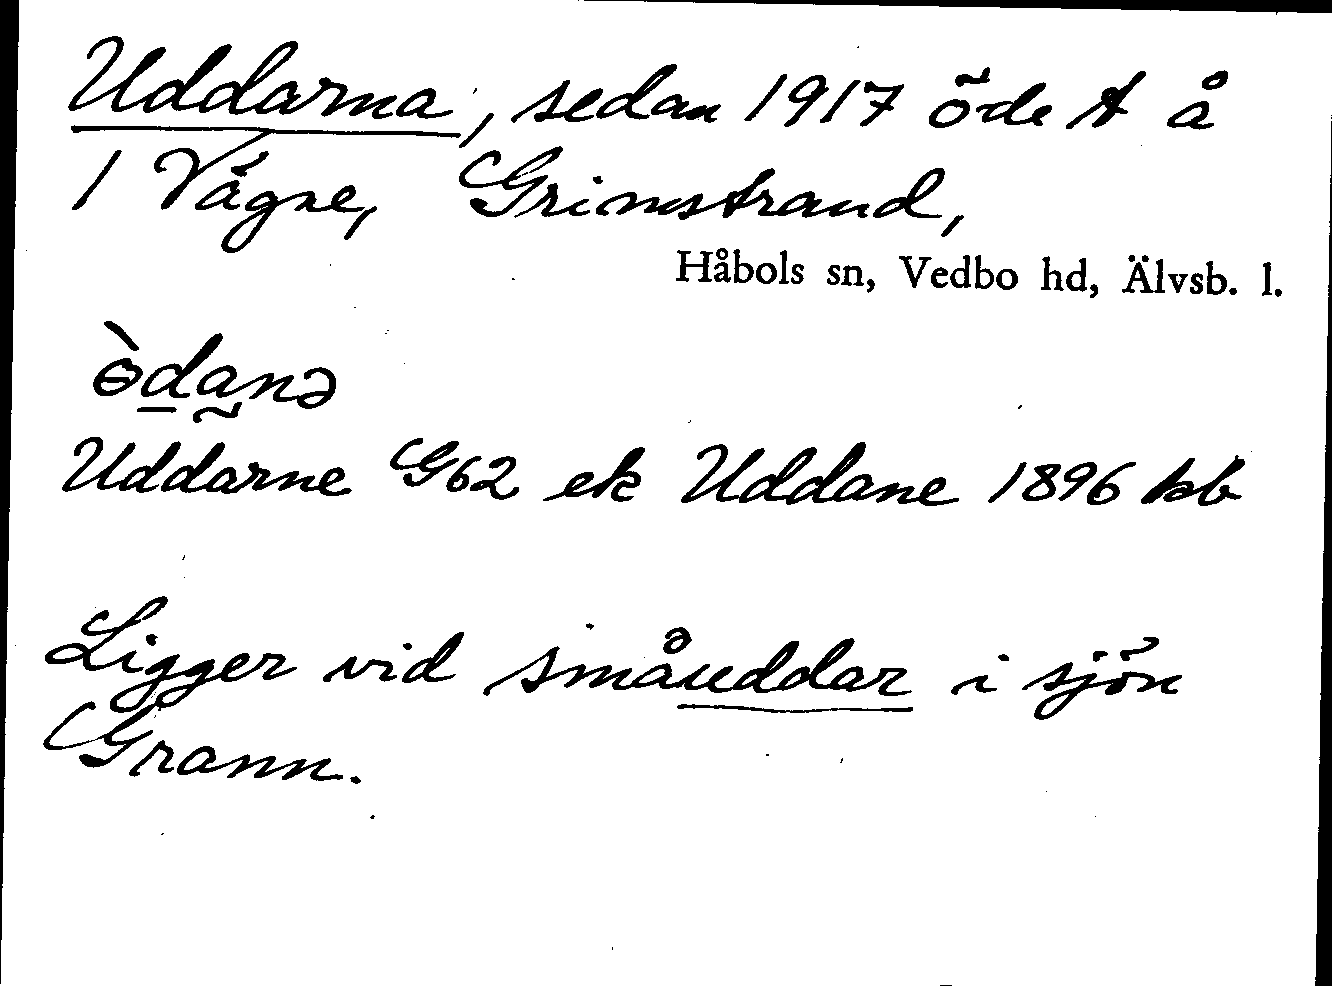 Uddarna, sedan 1917 öde t å
1 Vågne, Grimstrand,
Håbols sn, Vedbo hd, Älvsb. l.
ɵ̀da̰nə
Uddarne G62 ek Uddane 1896 kb
Ligger vid småuddar i sjön
Grann.